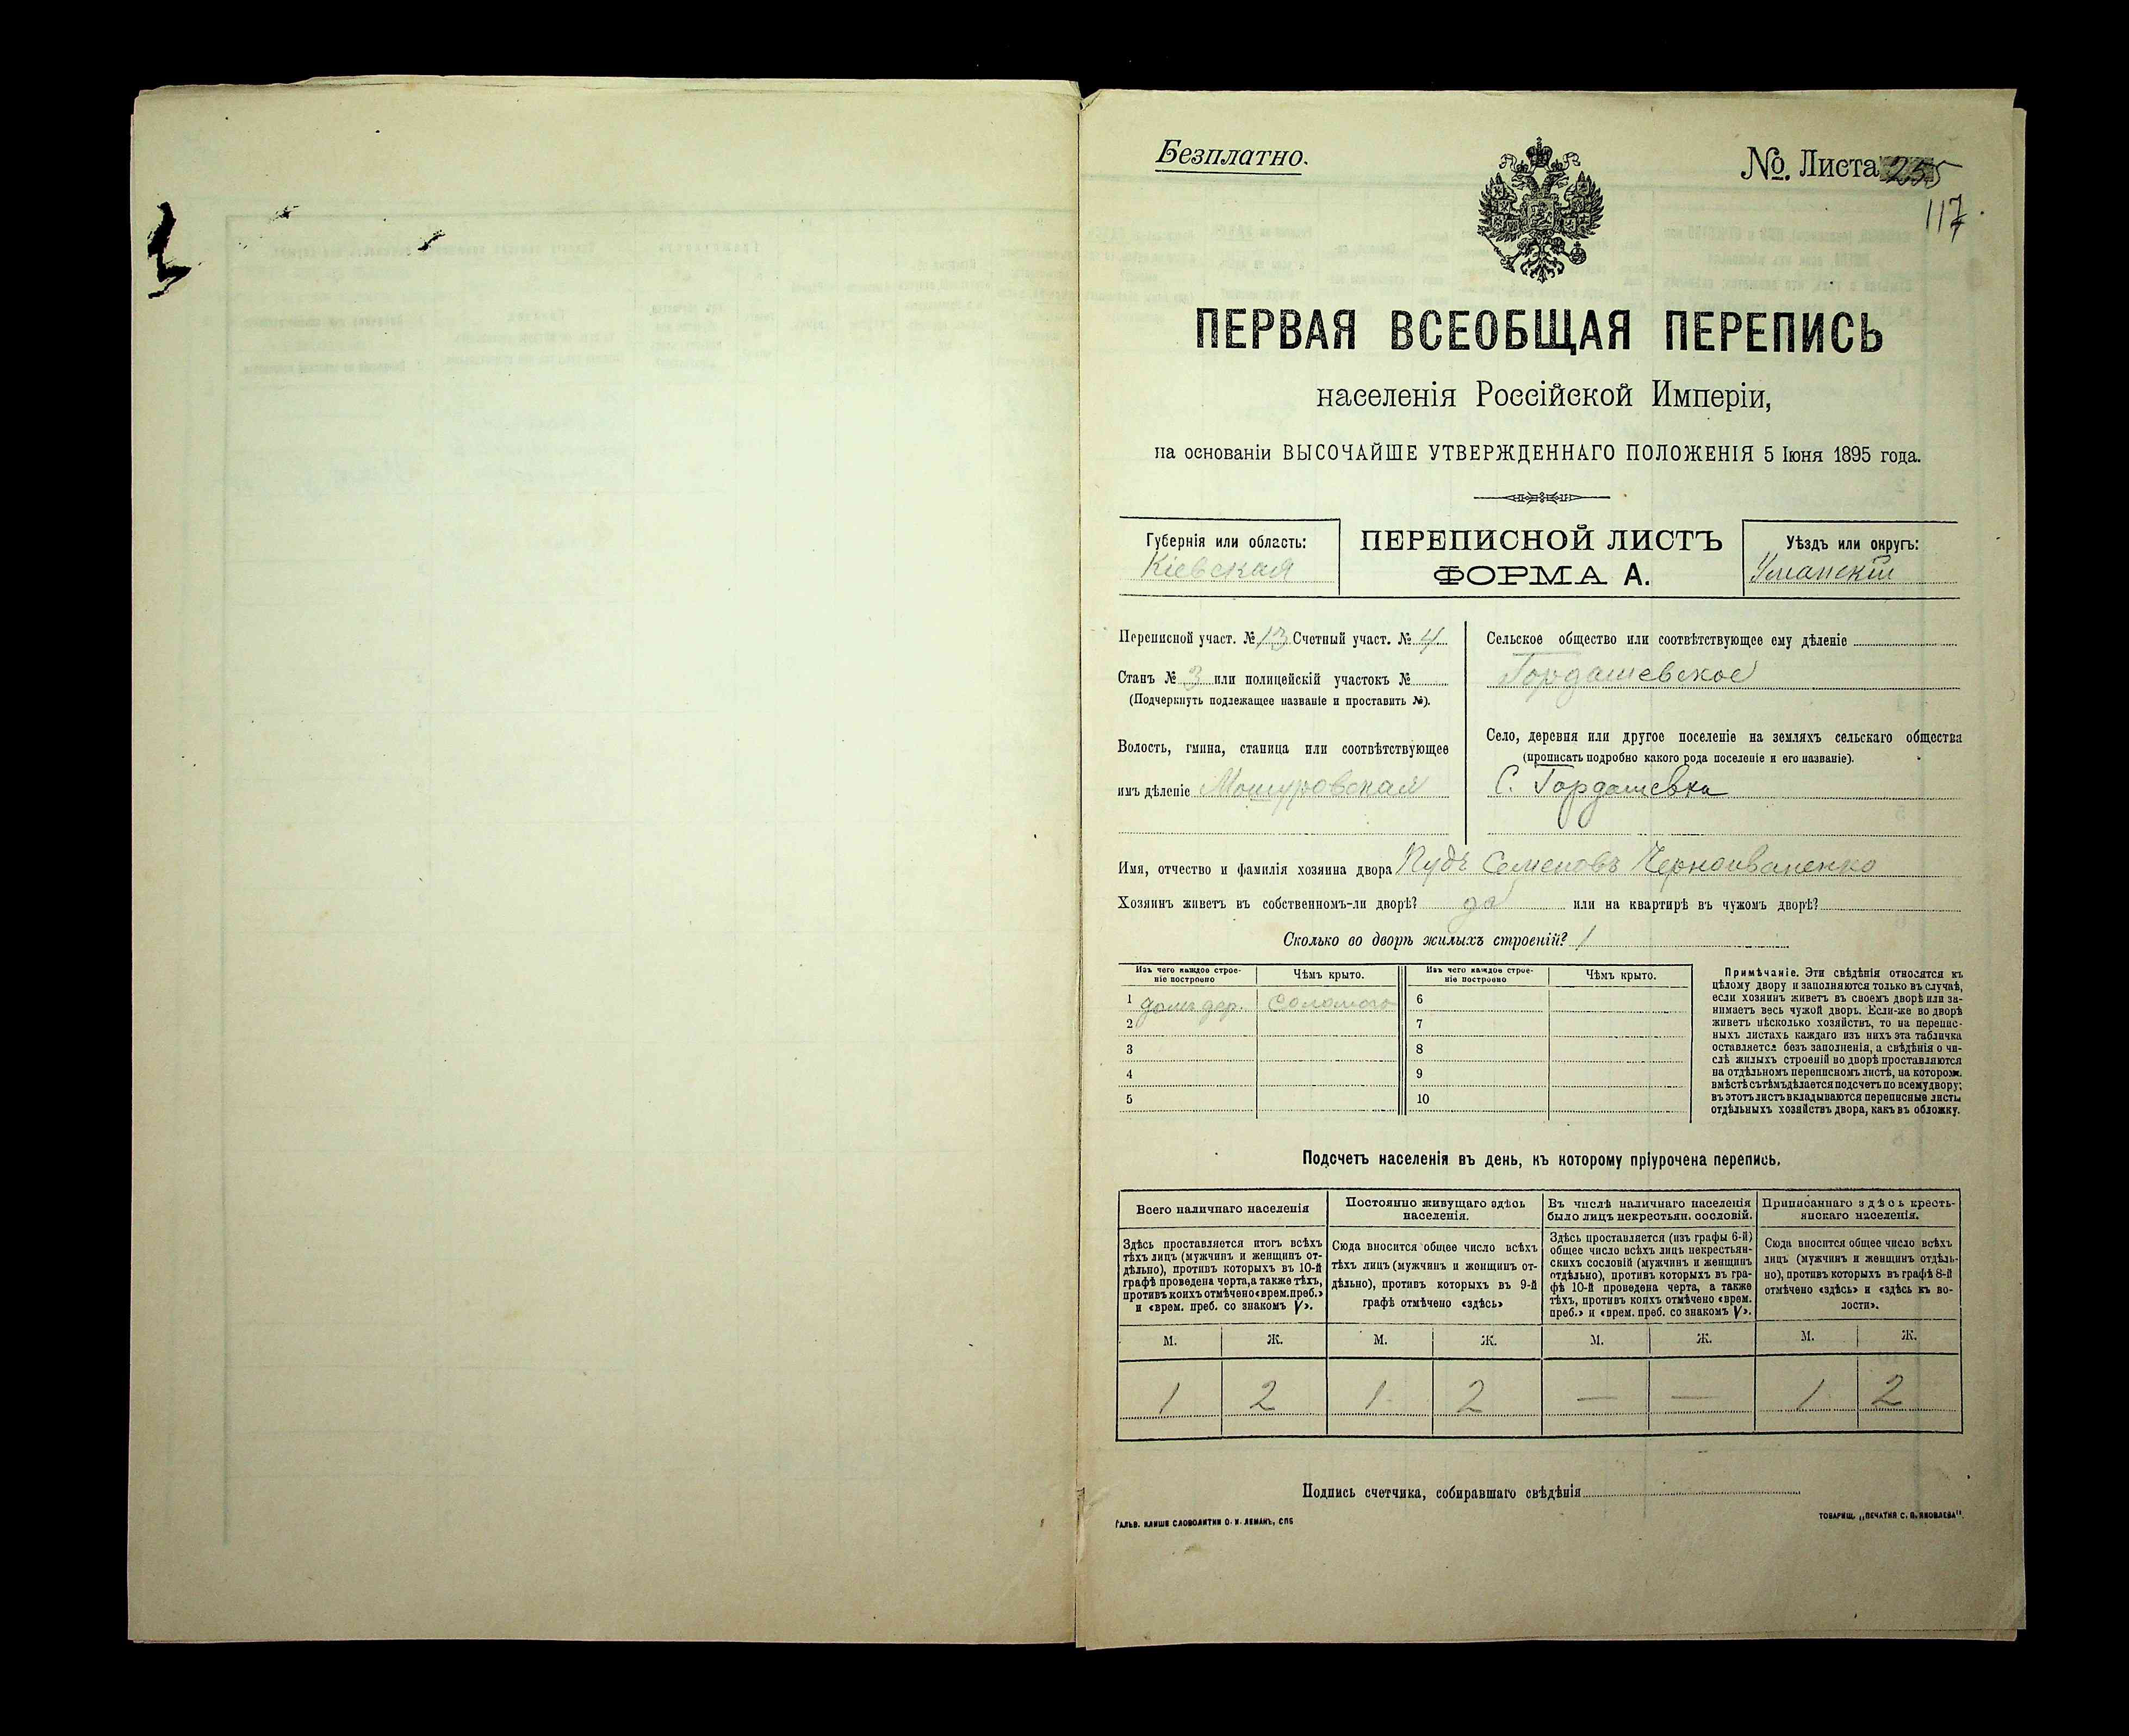 Безплатно.
№. Листа 255
117.
ПЕРВАЯ ВСЕОБЩАЯ ПЕРЕПИСЬ
населенія Россійской Имперіи,
на основаніи ВЫСОЧАЙШЕ УТВЕРЖДЕННАГО ПОЛОЖЕНІЯ 5 Іюня 1895 года.
Губернія или область:
Кіевская
ПЕРЕПИСНОЙ ЛИСТЪ
ФОРМА А.
Уѣздъ или округъ:
Уманскій
Переписной участ. № 13 Счетный участ. № 4
Станъ № 3 или полицейскій участокъ №
(Подчеркнуть подлежащее названіе и проставить №).
Волость, гмина, станица или соотвѣтствующее
имъ дѣленіе Мошуровская
Сельское общество или соотвѣтствующее ему дѣленіе
Гордашевское
Село, деревня или другое поселеніе на земляхъ сельскаго общества
(прописать подробно какого рода поселеніе и его названіе).
С. Гордашевка
Имя, отчество и фамилія хозяина двора Пудъ Семеновъ Черноиваненко
Хозяинъ живетъ въ собственномъ-ли дворѣ? да или на квартирѣ въ чужомъ дворѣ?
Сколько во дворѣ жилыхъ строеній? 1
Изъ чего каждое строе-
ніе построено
Чѣмъ крыто.
Изъ чего каждое строе-
ніе построено
Чѣмъ крыто.
1 домъ дер. соломою 6
2 7
3 8
4 9
5 10
Примѣчаніе. Эти свѣдѣнія относятся къ
цѣлому двору и заполняются только въ случаѣ,
если хозяинъ живетъ въ своемъ дворѣ или за-
нимаетъ весь чужой дворъ. Если-же во дворѣ
живетъ нѣсколько хозяйствъ, то на перепис-
ныхъ листахъ каждаго изъ нихъ эта табличка
оставляется безъ заполненія, а свѣдѣнія о чи-
слѣ жилыхъ строеній во дворѣ проставляются
на отдѣльномъ переписномъ листѣ, на которомъ
вмѣстѣ съ тѣмъ дѣлается подсчетъ по всему двору;
въ этотъ листъ вкладываются переписные листы
отдѣльныхъ хозяйствъ двора, какъ въ обложку.
Подсчетъ населенія въ день, къ которому пріурочена перепись.
Всего наличнаго населенія
Здѣсь проставляется итогъ всѣхъ
тѣхъ лицъ (мужчинъ и женщинъ от-
дѣльно), противъ которыхъ въ 10-й
графѣ проведена черта, а также тѣхъ,
противъ коихъ отмѣчено «врем. преб.»
и «врем. преб. со знакомъ V».
Постоянно живущаго здѣсь
населенія.
Сюда вносится общее число всѣхъ
тѣхъ лицъ (мужчинъ и женщинъ от-
дѣльно), противъ которыхъ въ 9-й
графѣ отмѣчено «здѣсь»
Въ числѣ наличнаго населенія
было лицъ некрестьян. сословій.
Здѣсь проставляется (изъ графы 6-й)
общее число всѣхъ лицъ некрестьян-
скихъ сословій (мужчинъ и женщинъ
отдѣльно), противъ которыхъ въ гра-
фѣ 10-й проведена черта, а также
тѣхъ, противъ коихъ отмѣчено «врем.
преб.» и «врем. преб. со знакомъ V».
Приписаннаго здѣсь кресть-
янскаго населенія.
Сюда вносится общее число всѣхъ
лицъ (мужчинъ и женщинъ отдѣль-
но), противъ которыхъ въ графѣ 8-й
отмѣчено «здѣсь» и «здѣсь къ во-
лости».
М. Ж. М. Ж. М. Ж. М. Ж.
1 2 1 2 — — 1 2
Подпись счетчика, собиравшаго свѣдѣнія
ГАЛЬВ. КЛИШЕ СЛОВОЛИТНИ О. И. ЛЕМАНЪ, СПБ
ТОВАРИЩ. „ПЕЧАТНЯ С. П. ЯКОВЛЕВА"